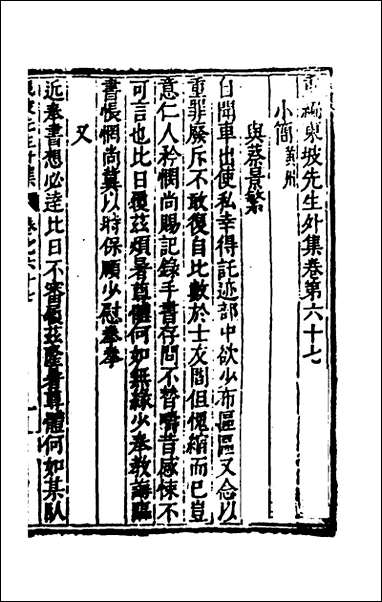 重編東坡先生外集卷第六十七
小簡黃州
與蔡景繁
自聞車出使私幸得託迹部中欲少布區區又念以
重罪廢斥不敢復自比數於士友間但愧縮而已豈
意仁人矜憫尚賜記錄手書存問不替疇昔感悚不
可言也比日履茲煩暑尊體何如無緣少奉教誨臨
書悵惘尚冀以時保頤少慰拳拳
又
近奉書想必達比日不審履茲隆暑尊體何如某臥